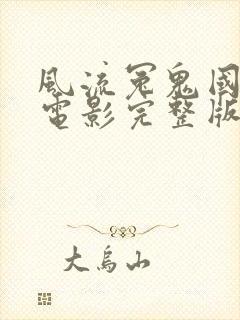 風流冤鬼國
電影完整版
大烏山